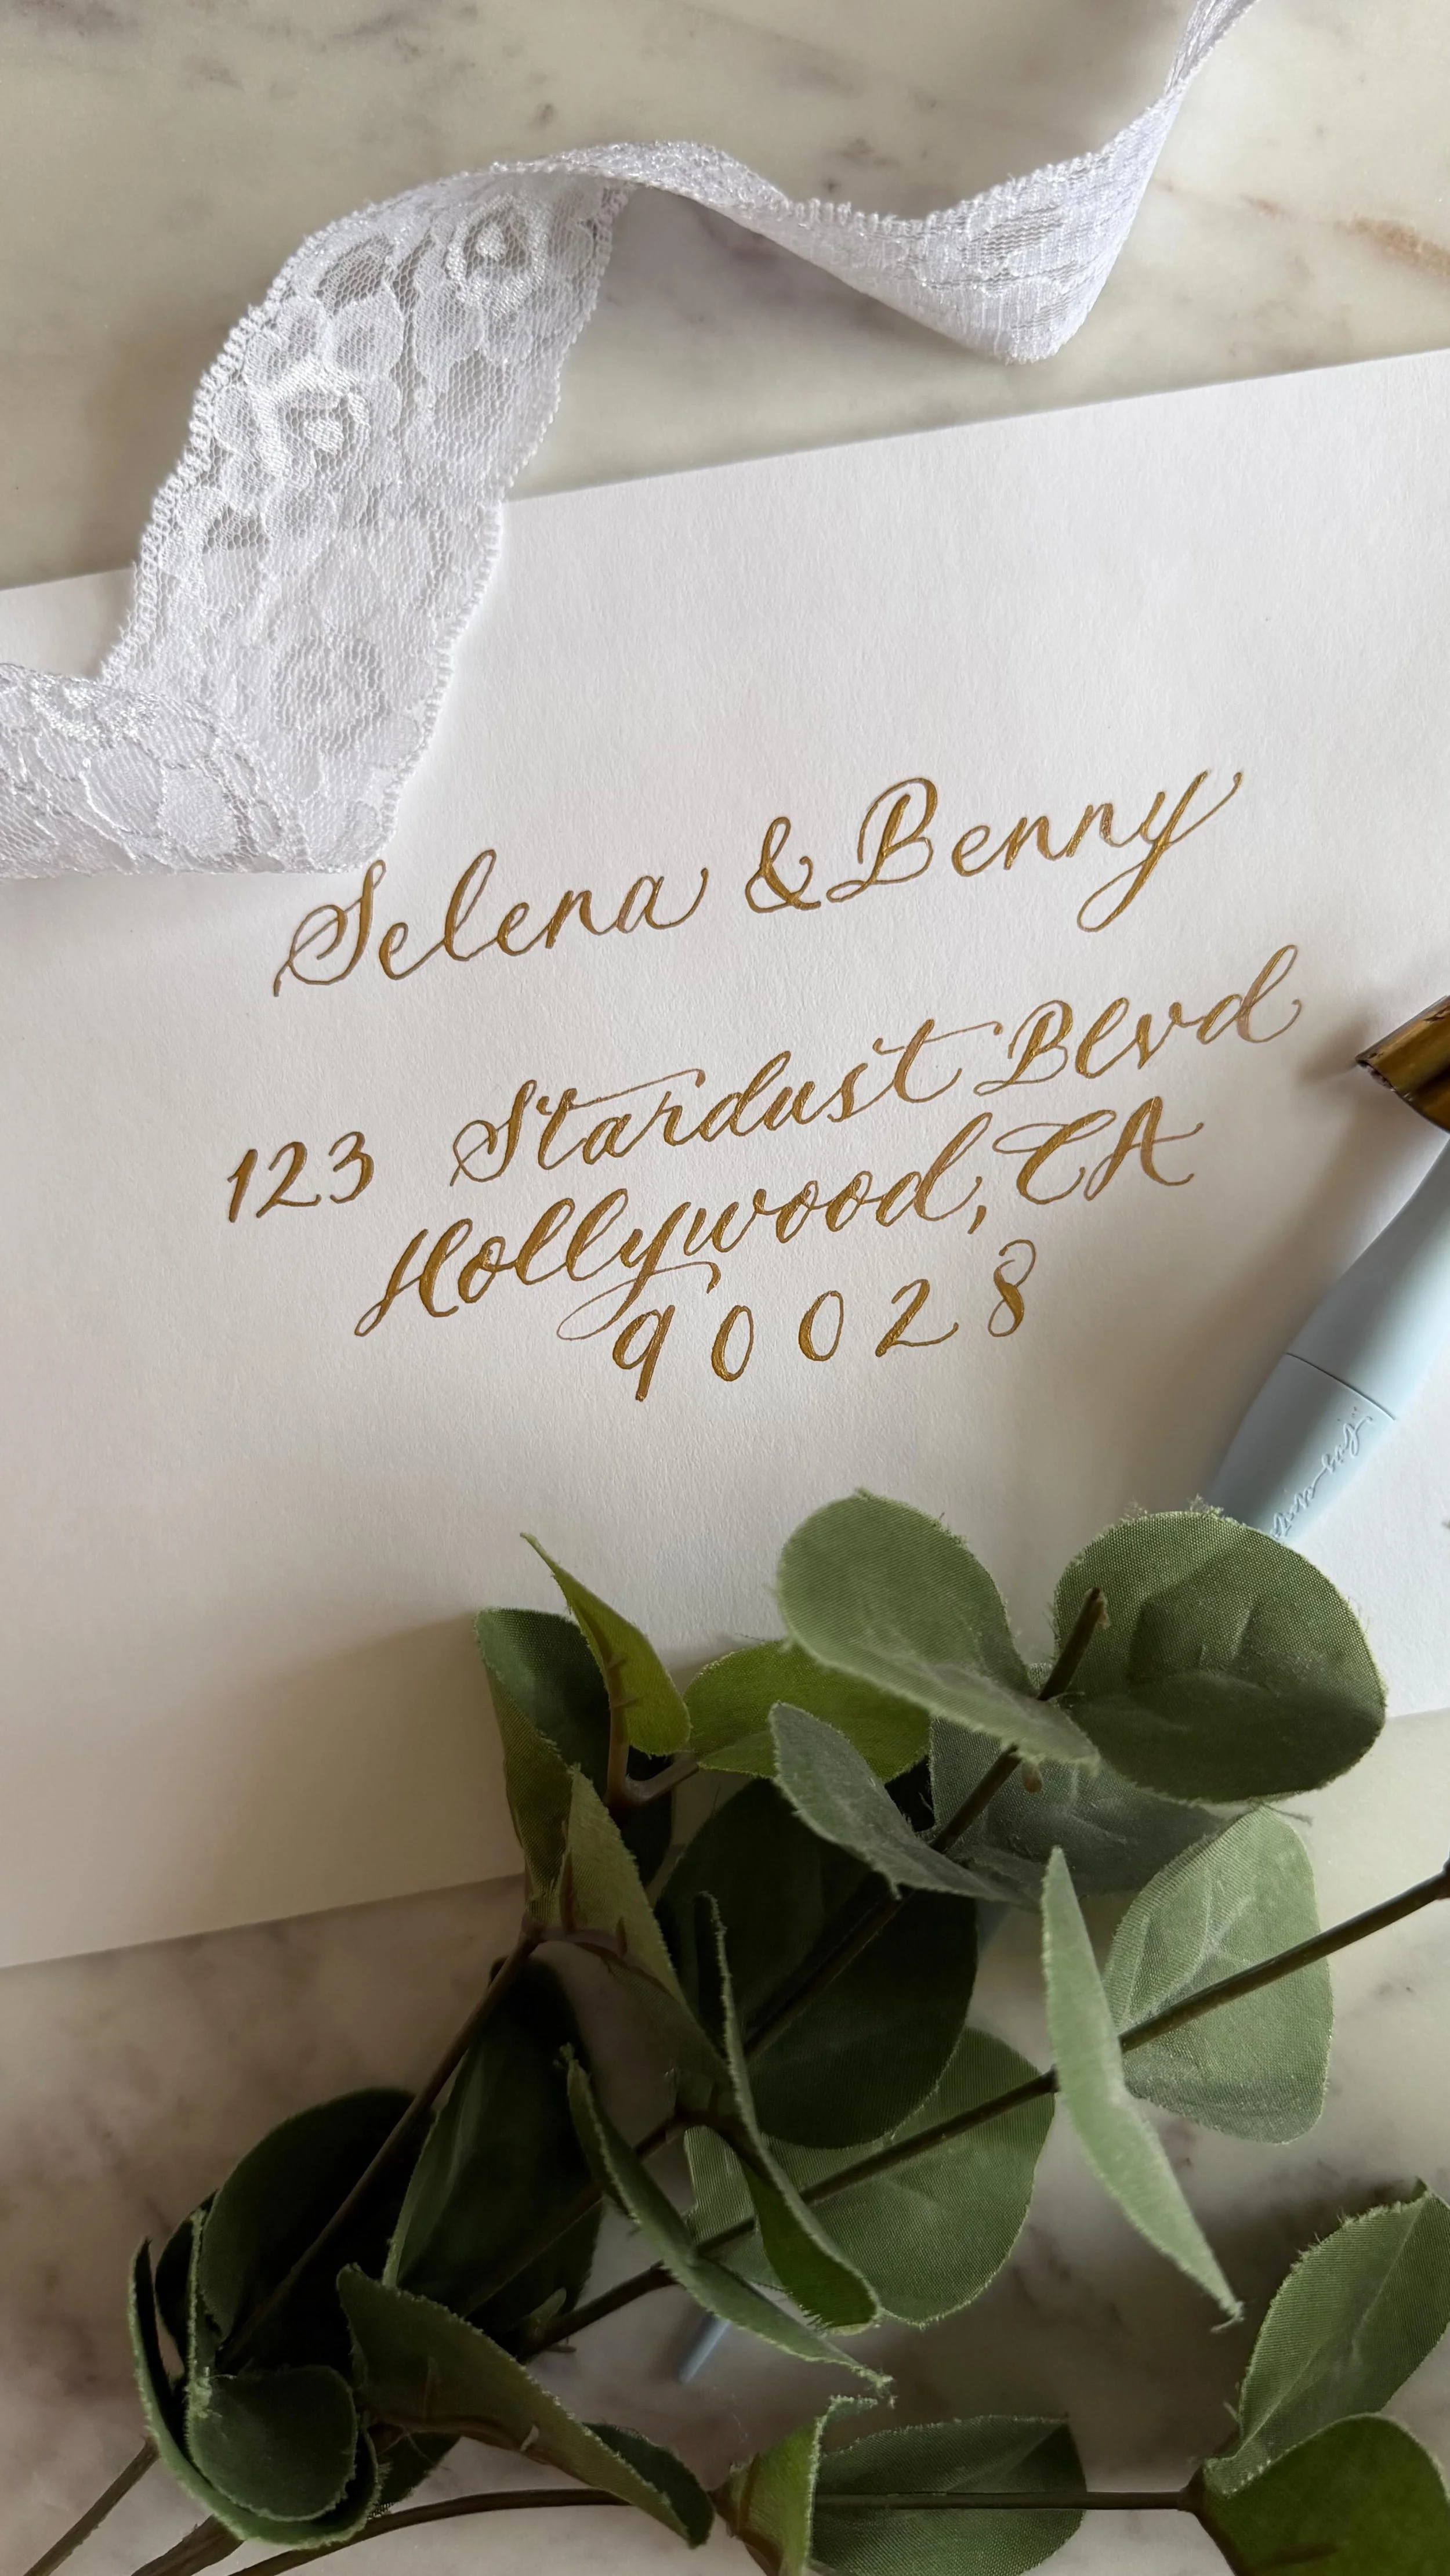 Selena & Benny
123 Stardust Blvd
Hollywood, CA
90028